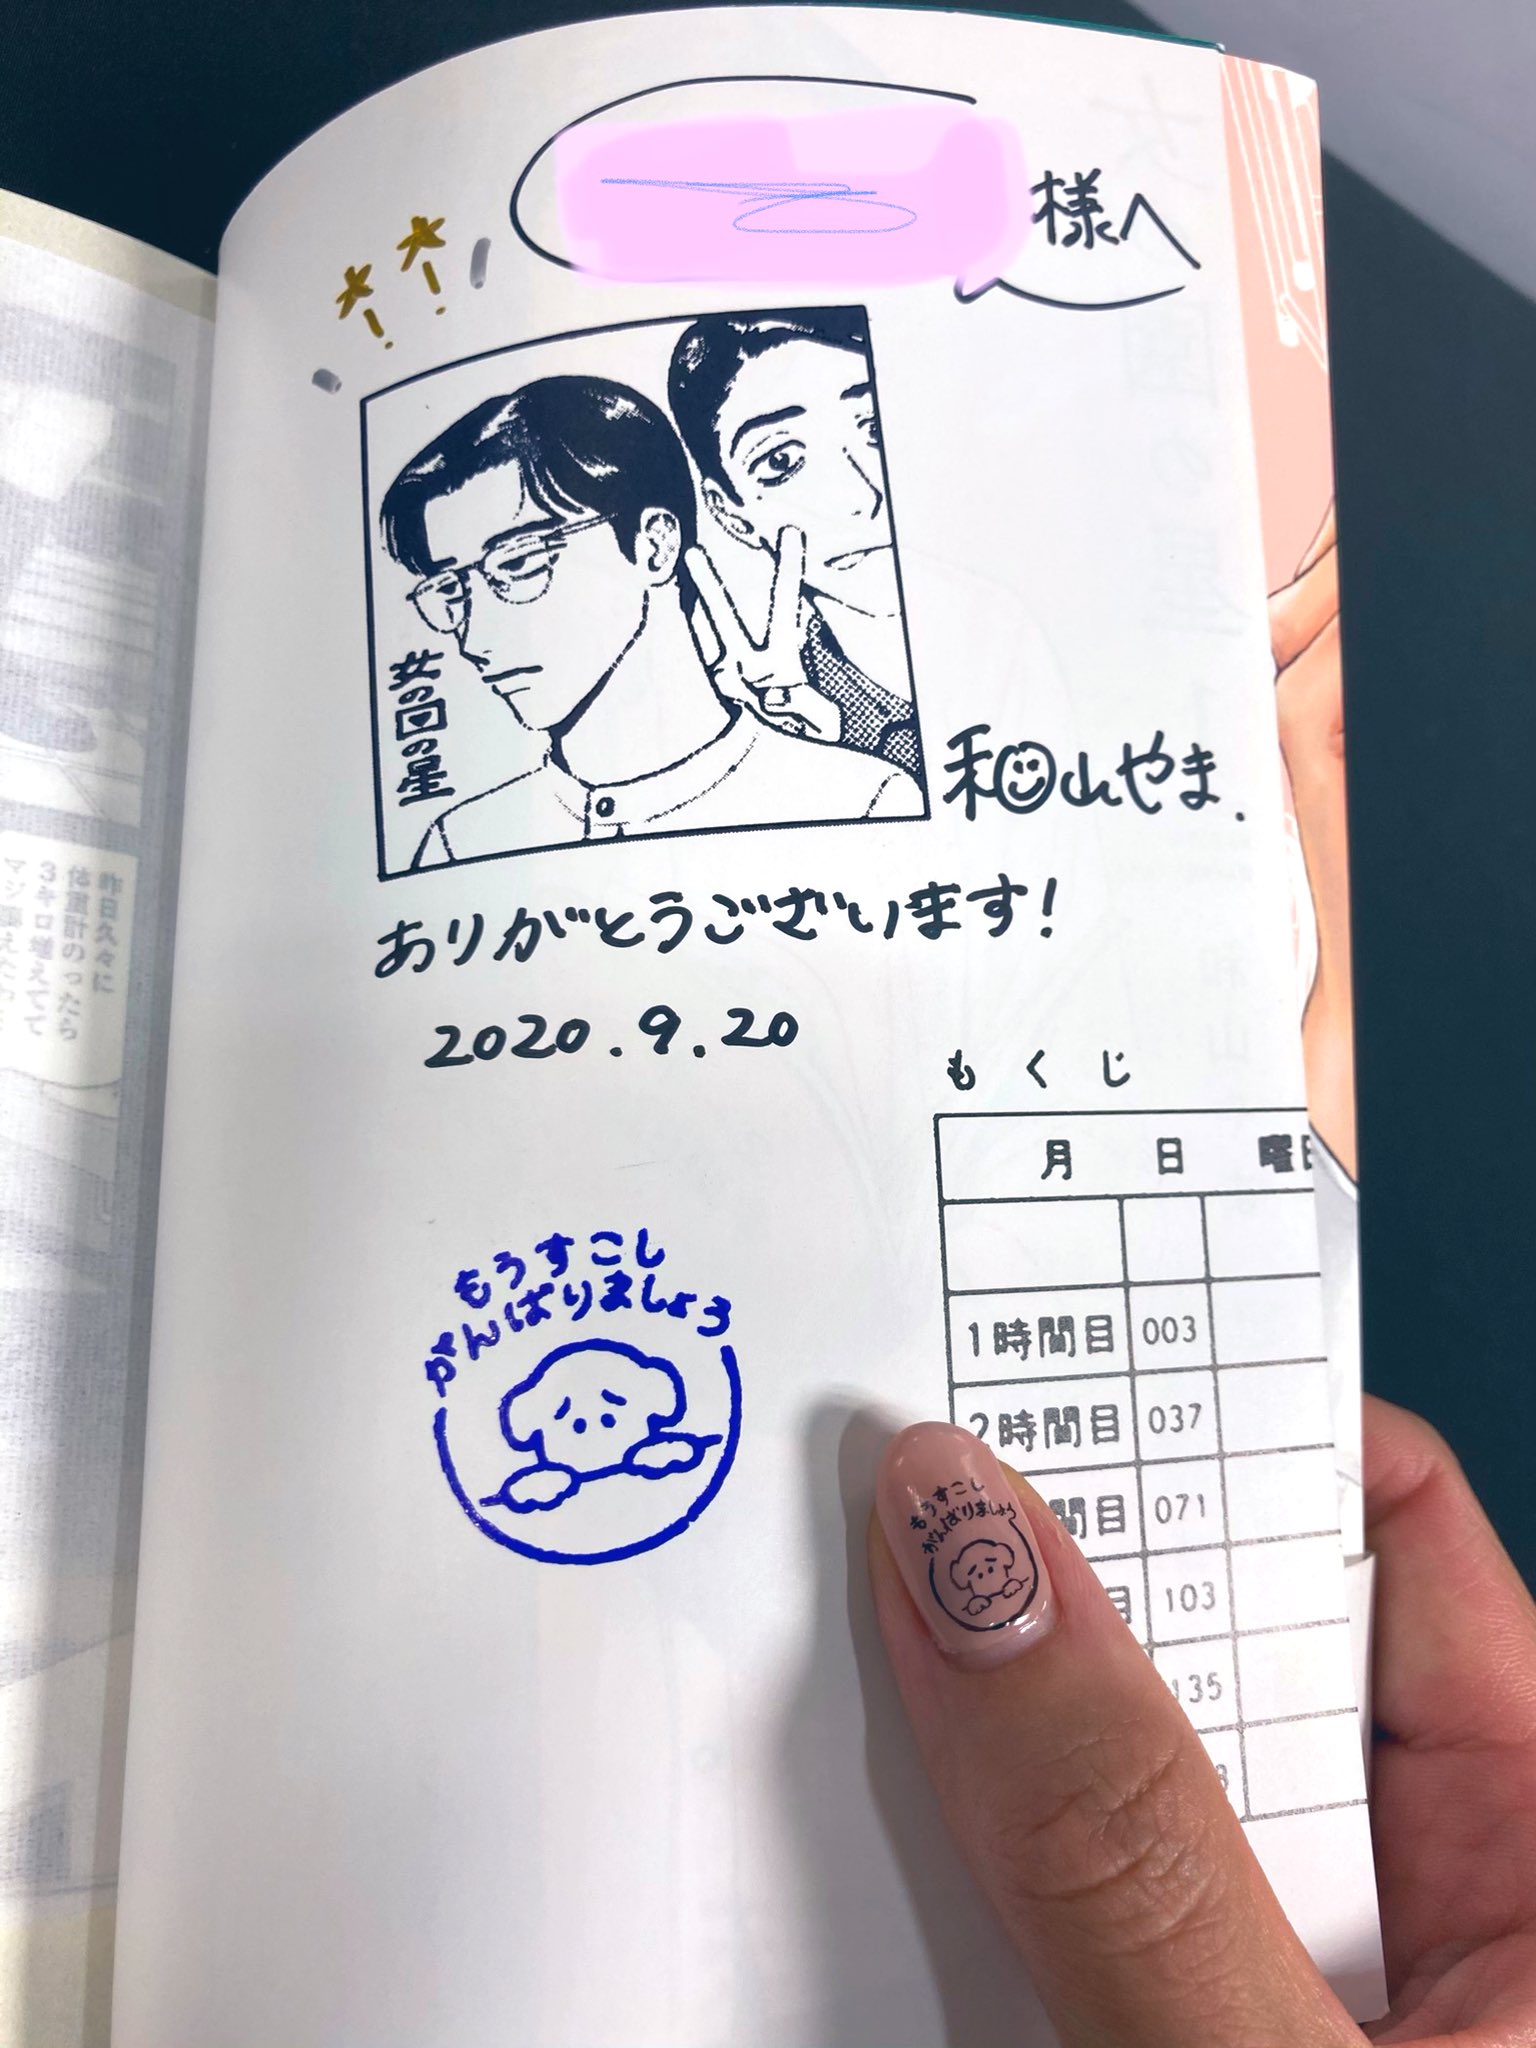 様へ
女の園の星
和山やま.
ありがとうございます!
2020.9.20
もくじ
月 日 曜日
1時間目 003
2時間目 037
間目 071
103
135
もうすこし
がんばりましょう
もうすこし
がんばりましょう
昨日久々に
体重計のったら
3キロ増えてて